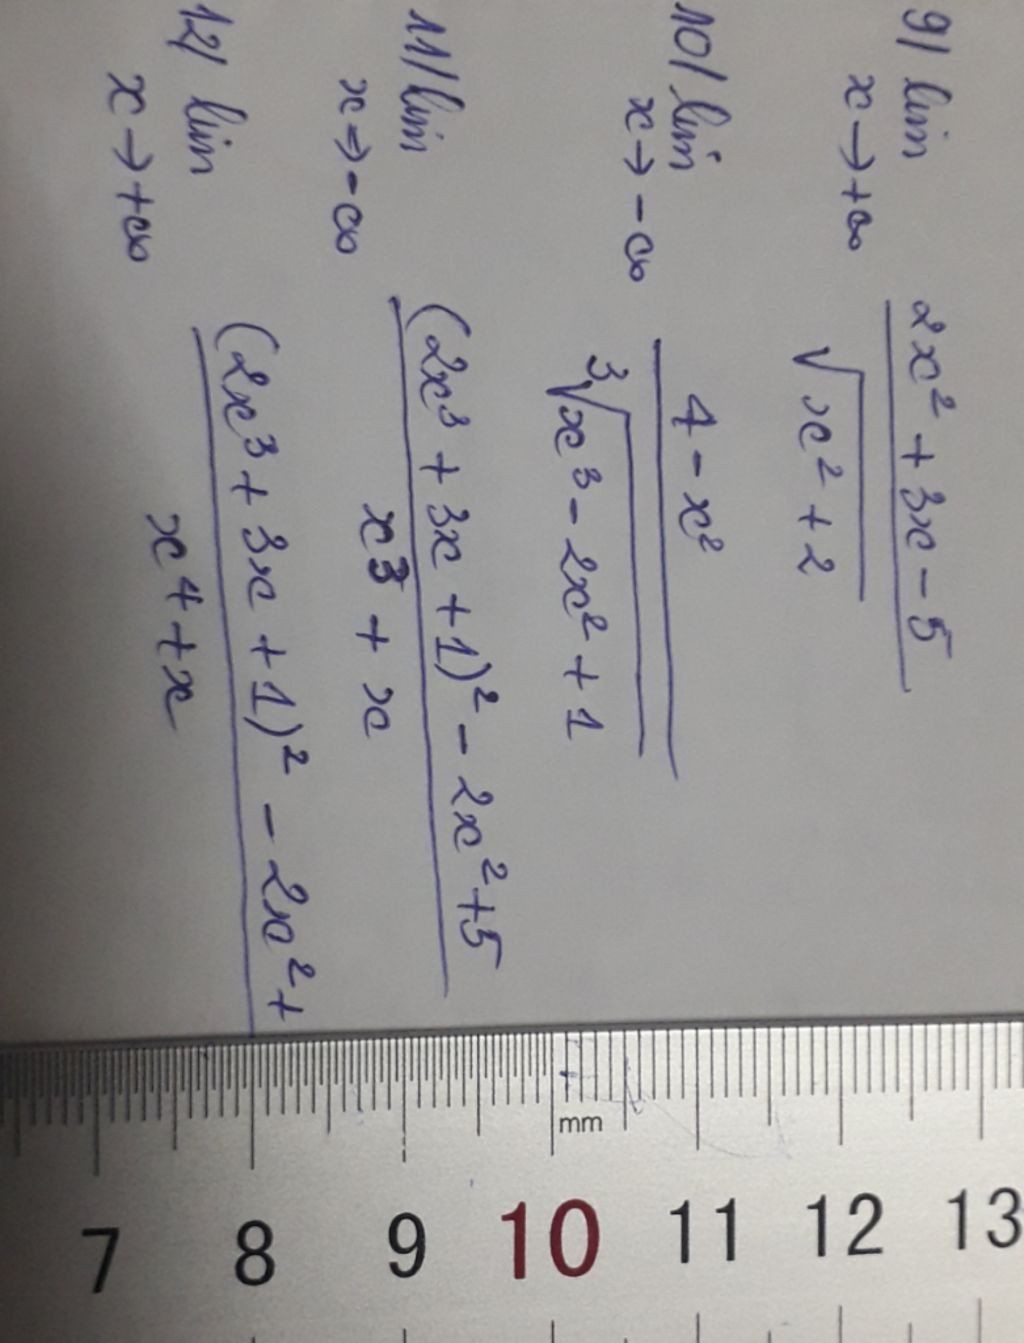 9/ lim 2x² + 3x - 5
x → +∞ √x² + 2
10/ lim 4 - x²
x → -∞ ³√x³ - 2x² + 1
11/ lim (2x³ + 3x + 1)² - 2x² + 5
x ⇒ -∞ x³ + x
12/ lim (2x³ + 3x + 1)² - 2x² +
x → +∞ x⁴ + x
mm
7 8 9 10 11 12 13